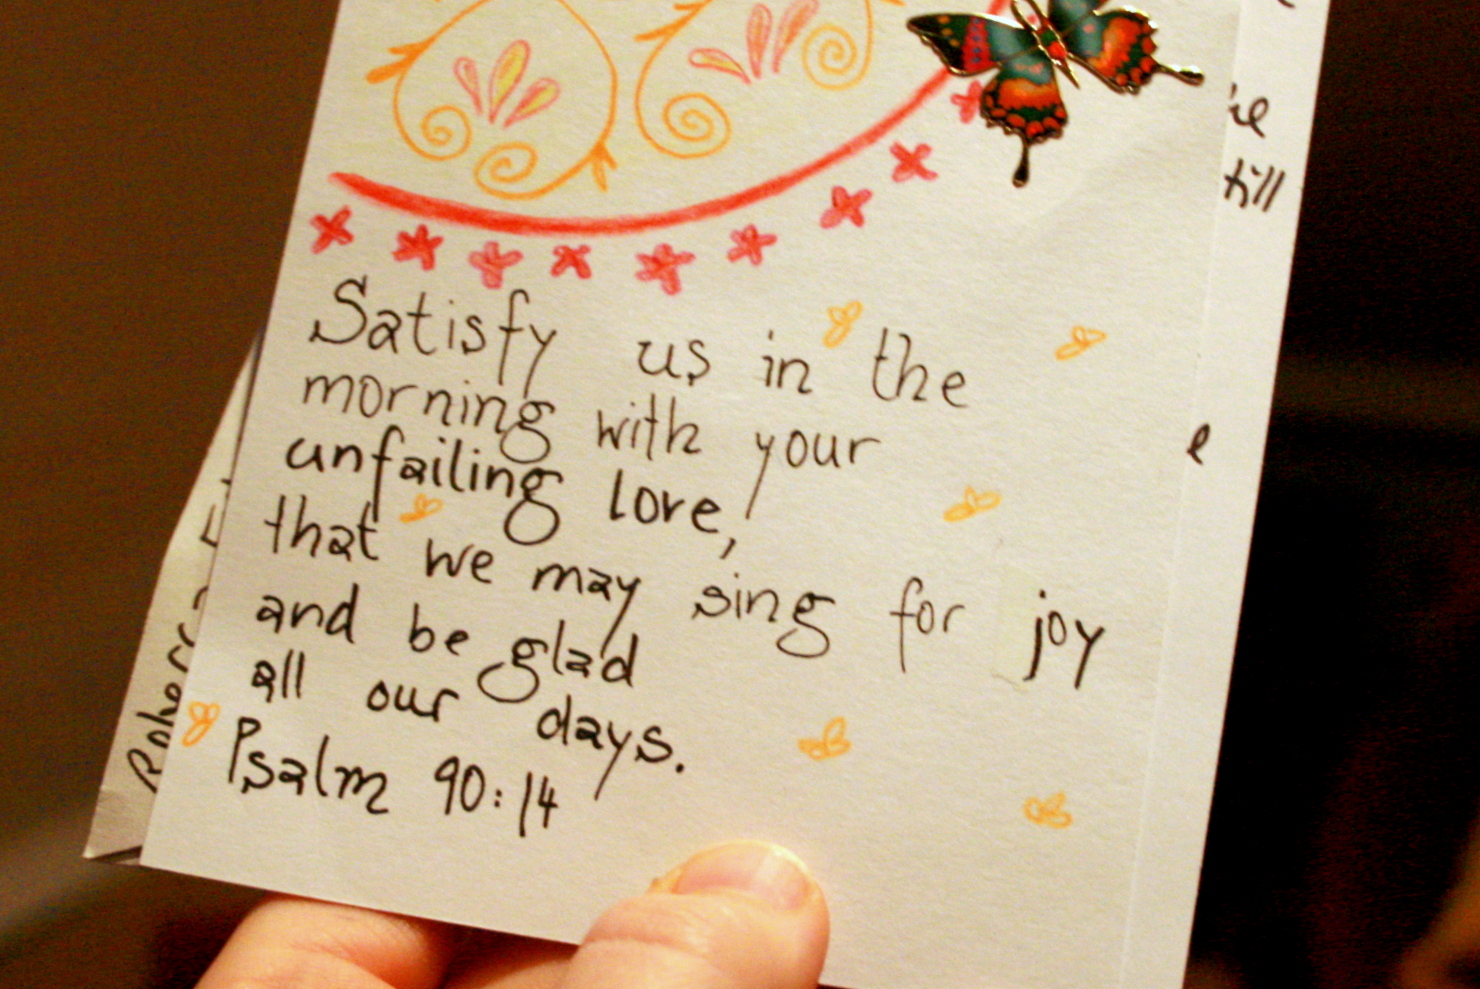 Satisfy us in the
morning with your
unfailing love,
that we may sing for joy
and be glad
all our days.
Psalm 90:14